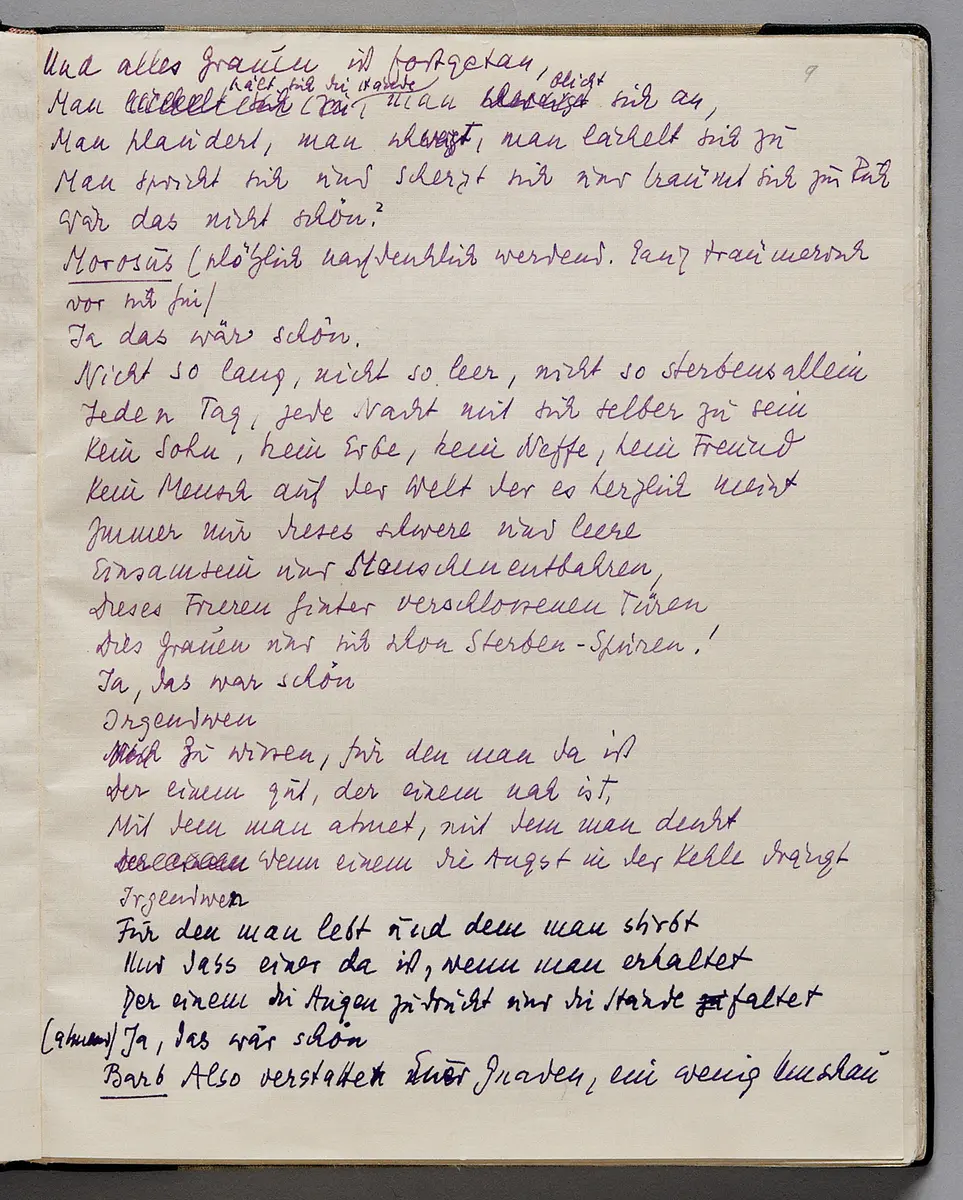 9
Und alles Grauen ist fortgetan,
hält sich die Hände blickt
Man man sich an,
Man plaudert, man schweigt, man lächelt sich zu
Man spricht sich und scherzt sich und träumt sich zur Ruh
Wär das nicht schön?
Morosus (plötzlich nachdenklich werdend. Ganz träumerisch
vor sich hin)
Ja das wär schön.
Nicht so lang, nicht so leer, nicht so sterbensallein
Jeden Tag, jede Nacht mit sich selber zu sein
Kein Sohn, kein Erbe, kein Neffe, kein Freund
Kein Mensch auf der Welt der es herzlich meint
Immer nur dieses schwere und leere
Einsamsein und Menschenentbehren,
Dieses Frieren hinter verschlossenen Türen
Dies Grauen und sich schon Sterben-Spüren!
Ja, das wär schön
Irgendwen
Zu wissen, für den man da ist
Der einem gut, der einem nah ist,
Mit dem man atmet, mit dem man denkt
Wenn einem die Angst in der Kehle drängt
Irgendwen
Für den man lebt und dem man stirbt
Und dass einer da ist, wenn man erkaltet
Der einem die Augen zudrückt und die Hände faltet
(atmend) Ja, das wär schön
Barb Also verstatten Euer Gnaden, ein wenig Umschau